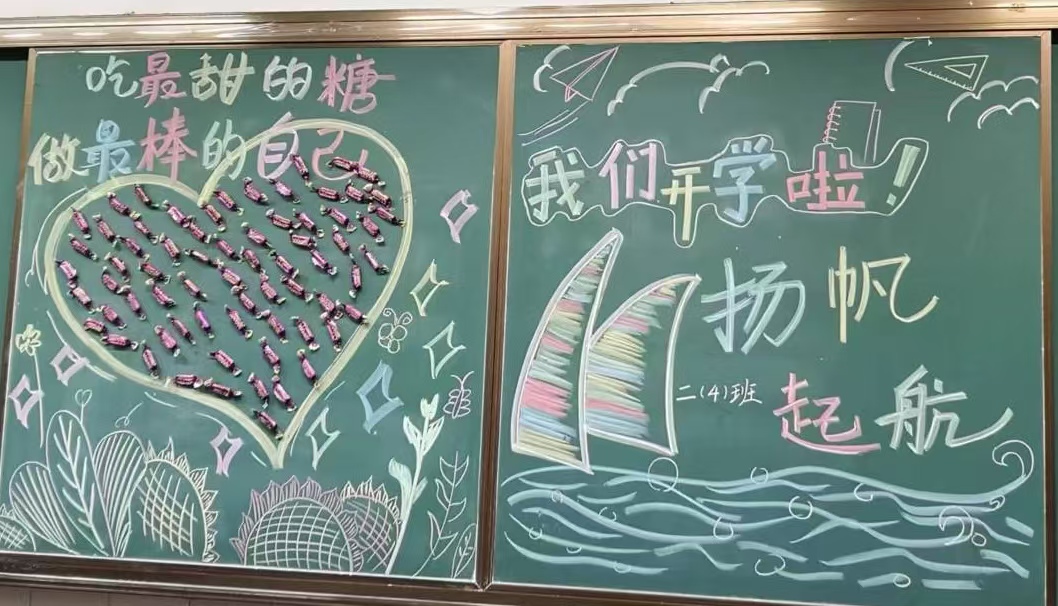 吃最甜的糖
做最棒的自己
我们开学啦！
扬帆
二（4）班
起航